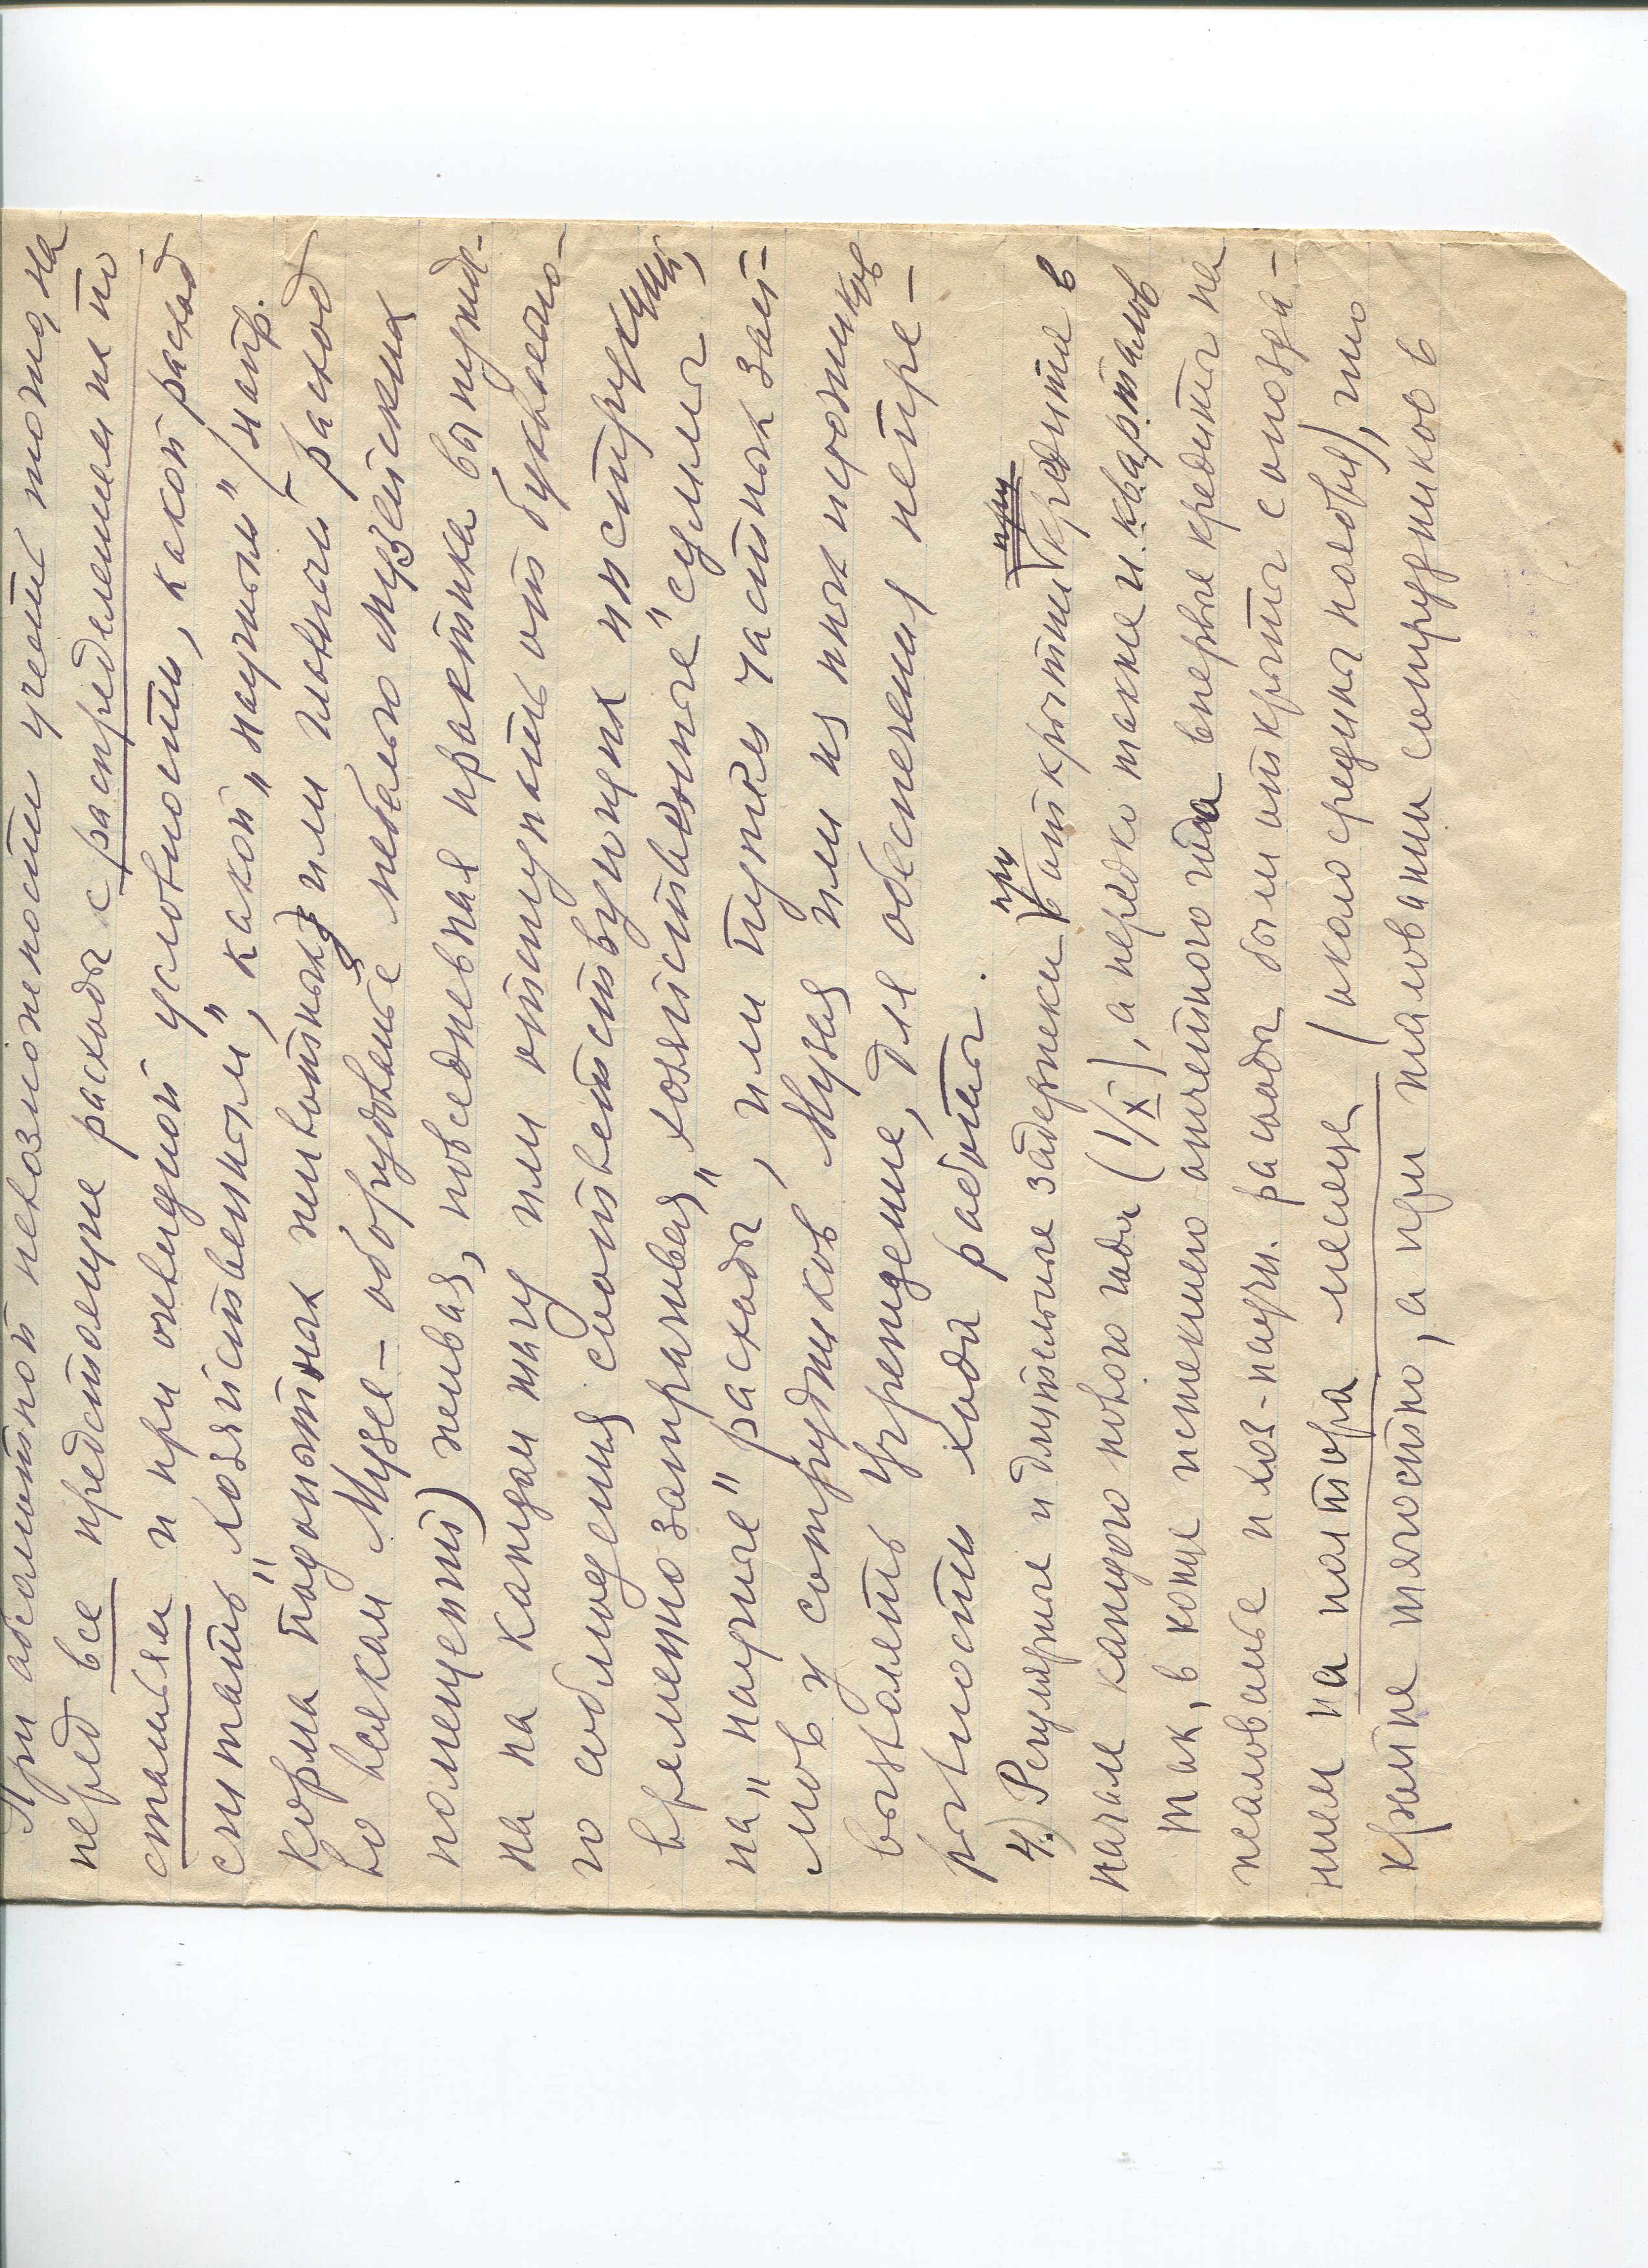 При абсолютной невозможности учесть точно, на
перед все предстоящие расходы с распределением их по
статьям и при очевидной условности, какой расход
считать „хозяйственным", какой „научным" (напр.
корма подопытных животных) или иной расход
во всяком Музее – оборудованье небольшого музейских
помещений) повседневная практика вынужде-
на на каждом шагу или отступать от буквально-
го соблюдения соответствующих инструкций,
временно заимствуя „хозяйственные" суммы
на „научные" расходы, или путем частных зай-
мов у сотрудников Музея или из них источников
вызволять Учреждение, для обеспечения непре-
рывности хода работы.
4.) Регулярные и длительные задержки при открытии при кредитов в
начале каждого нового года (1/X), а нередко также и кварталов
Так, в конце истекшего отчетного года впервые кредиты на
жалованье и хоз-научн. расходы были открыты с опозда-
нием на полтора месяца (около средины ноября), что
крайне тягостно, а при жаловании сотрудников в